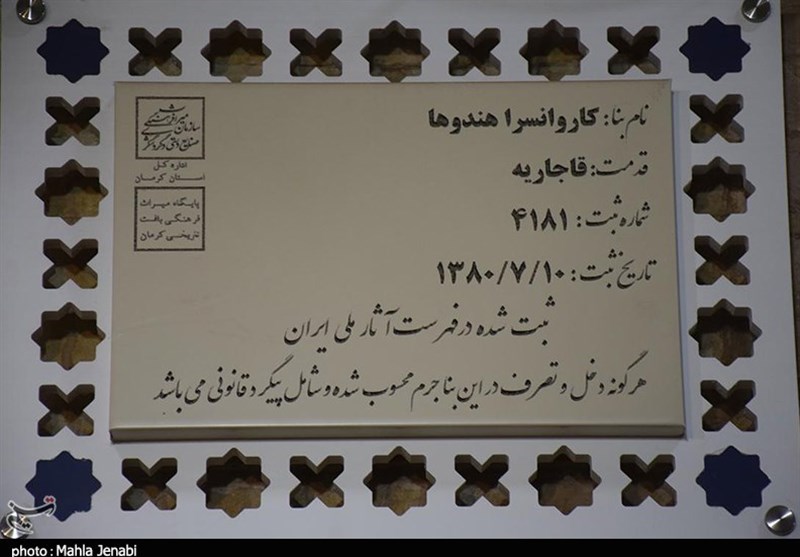 نام بنا: کاروانسرا هندوها
قدمت: قاجاریه
شماره ثبت: ۴۱۸۱
تاریخ ثبت: ۱۳۸۰/۷/۱۰
ثبت شده در فهرست آثار ملی ایران
هرگونه دخل و تصرف در این بنا جرم محسوب شده و شامل پیگرد قانونی می باشد
سازمان میراث فرهنگی
صنایع دستی و گردشگری
اداره کل
استان کرمان
پایگاه میراث
فرهنگی بافت
تاریخی کرمان
تسنیم
photo : Mahla Jenabi